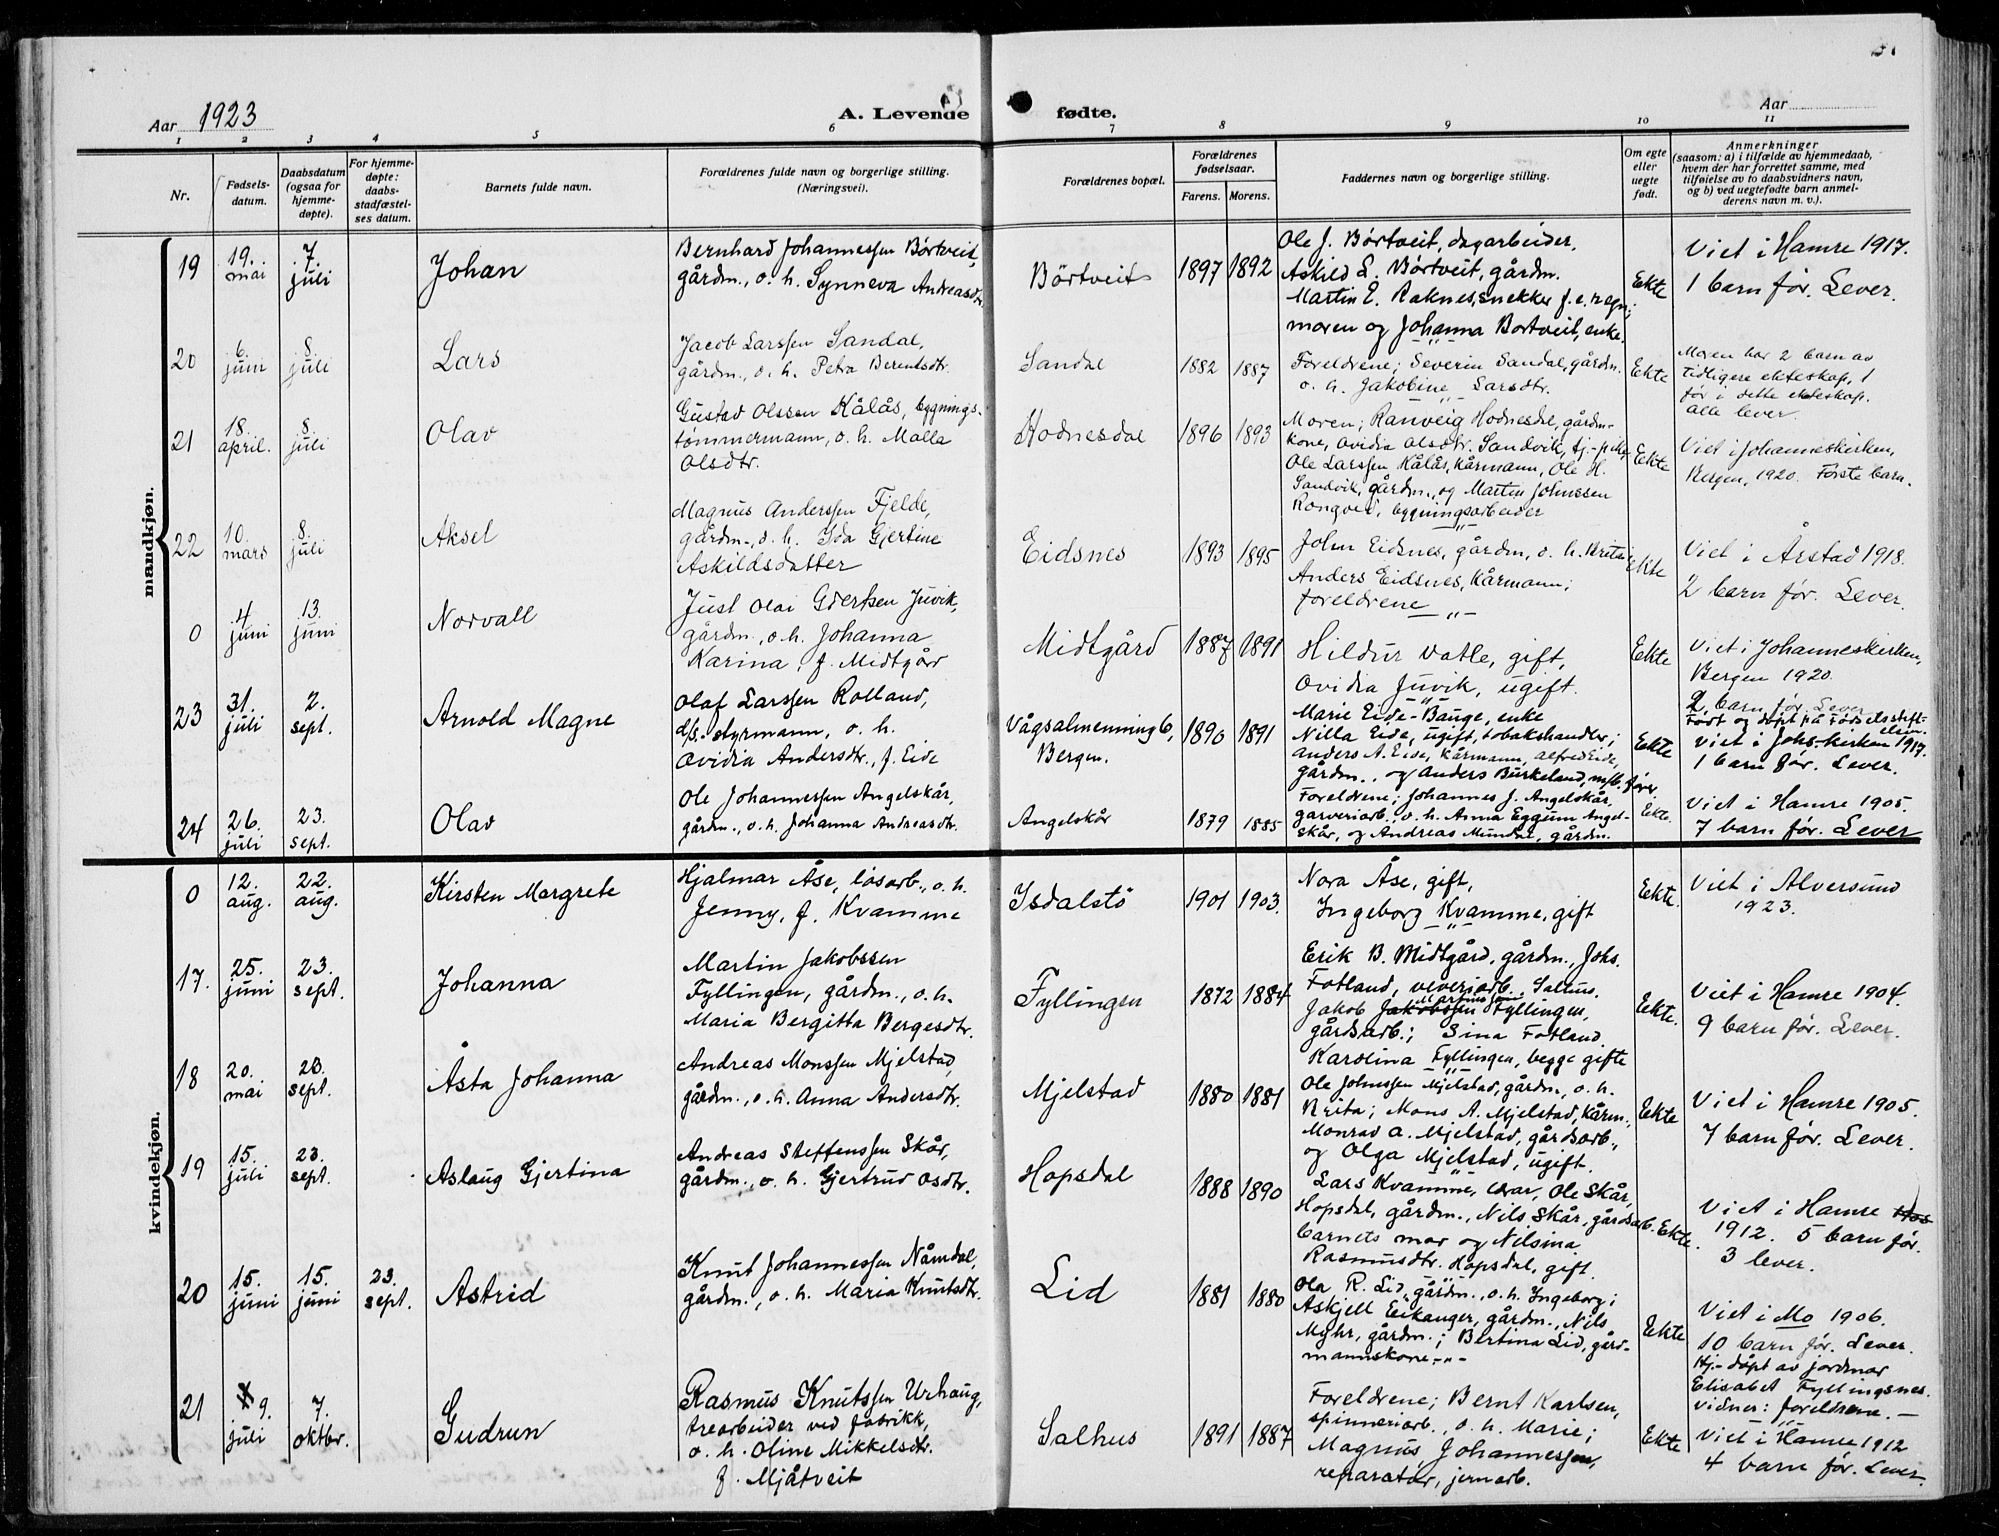 Aar 1923
A. Levende fødte.
Aar
1 2 3 4 5 6 7 8 9 10 11
Nr.
Fødsels-
datum.
Daabsdatum
(ogsaa for
hjemme-
døpte).
For hjemme-
døpte:
daabs-
stadfæstel-
ses datum.
Barnets fulde navn.
Forældrenes fulde navn og borgerlige stilling.
(Næringsvei).
Forældrenes bopæl.
Forældrenes
fødselsaar.
Farens. Morens.
Faddernes navn og borgerlige stilling.
Om egte
eller
uegte
født.
Anmerkninger
(saasom: a) i tilfælde av hjemmedaab,
hvem der har forrettet samme, med
tilføielse av to daabsvidners navn,
og b) ved uegtefødte barn anmel-
derens navn m. v.).
mandkjøn.
19
19.
mai
7.
juli
Johan
Bernhard Johannessen Børtveit,
gårdm., o. h. Synneva Andreasdtr.
Børtveit
1897 1892
Ole J. Børtveit, dagarbeider,
Askild L. Børtveit, gårdm.
Martin E. Raknes, snekker f. e. regn;
moren og Johanna Børtveit, enke.
Ekte
Viet i Hamre 1917.
1 barn før. Lever.
20
6.
juni
8.
juli
Lars
Jacob Larssen Sandal,
gårdm., o. h. Petra Berentsdtr.
Sandal
1882 1887
Foreldrene; Severin Sandal, gårdm.
o. h. Jakobine Larsdtr.
Ekte
Moren har 2 barn av
tidligere ekteskap, 1
før i dette ekteskap.
alle lever.
21
18.
april.
8.
juli
Olav
Gustav Olssen Kålås, bygnings-
tømmermann, o. h. Malla
Olsdtr.
Hodnesdal
1896 1893
Moren; Ranveig Hodnesdal, gårdm-
kone, Ovidia Olsdtr. Sandvik, tj.-pike,
Ole Larssen Kålås, kårmann, Ole H.
Sandvik, gårdm., og Martin Johnssen
Rongved, bygningsarbeider
Ekte
Viet i Johanneskirken,
Bergen, 1920. Første barn.
22
10.
mars
8.
juli
Aksel
Magnus Anderssen Fjelde,
gårdm., o. h. Ida Gjertine
Askildsdatter
Eidsnes
1893 1895
John Eidsnes, gårdm., o. h. Brita;
Anders Eidsnes, kårmann;
foreldrene
Ekte
Viet i Årstad 1918.
2 barn før. Lever.
0
4
juni
13.
juni
Norvall
Just Olai Gjertsen Juvik,
gårdm., o. h. Johanna
Karina, f. Midtgård
Midtgård
1887 1891
Hildur Vatle, gift,
Ovidia Juvik, ugift.
Ekte
Viet i Johanneskirken,
Bergen 1920.
2. barn før. Lever
23
31.
juli
2.
sept.
Arnold Magne
Olaf Larssen Rolland,
d/s. styrmann, o. h.
Ovidia Andersdtr., f. Eide
Vågsalmenning 6,
Bergen.
1890 1891
Marie Eide-Bauge, enke
Nilla Eide, ugift, tobakshandler;
Anders A. Eide, kårmann, Alfred Eide,
gårdm., og Anders Birkeland, m/b. fører.
Ekte
Født og døpt på Fødselsstift-
elsen.
Viet i Johs-kirken 1917.
1 barn før. Lever.
24
26.
juli
23.
sept.
Olav
Ole Johannessen Angelskår,
gårdm., o. h. Johanna Andreasdtr.
Angelskår
1879 1885
Foreldrene; Johannes J. Angelskår,
garveriarb., o. h. Anna Eggum Angel-
skår, og Andreas Mundal, gårdm.
Ekte.
Viet i Hamre 1905.
7 barn før. Lever
kvindekjøn.
0
12.
aug.
22.
aug.
Kirsten Margrete
Hjalmar Åse, løsarb., o. h.
Jenny, f. Kvamme
Isdalstö
1901 1903.
Nora Åse, gift,
Ingeborg Kvamme, gift
Ekte.
Viet i Alversund
1923.
17.
25.
juni
23.
sept.
Johanna
Martin Jakobssen
Fyllingen, gårdm., o. h.
Maria Bergitta Bergesdtr.
Fyllingen
1872 1884
Erik B. Midtgård, gårdm., Johs.
Fotland, veveriarb., Salhus.
Jakob Jakobssen Martinssen Fyllingen,
gårdsarb.; Sina Fotland.
Karolina Fyllingen, begge gifte
Ekte.
Viet i Hamre 1904.
9 barn før. Lever.
18
20.
mai
23.
sept.
Åsta Johanna
Andreas Monssen Mjelstad,
gårdm., o. h. Anna Andersdtr.
Mjelstad
1880 1881
Ole Johnssen Mjelstad, gårdm., o. h.
Brita; Mons A. Mjelstad, kårm.,
Monrad A. Mjelstad, gårdsarb.,
og Olga Mjelstad, ugift.
Ekte
Viet i Hamre 1905.
7 barn før. Lever.
19
15.
juli
23.
sept.
Aslaug Gjertina
Andreas Steffenssen Skår,
gårdm., o. h. Gjertrud Osdtr.
Hopsdal
1888 1890
Lars Kvamme, Ole Skår,
Hopsdal, gårdm., Nils Skår, gårdsarb.
barnets mor og Nilsina
Rasmusdtr. Hopsdal, gift.
Ekte.
Viet i Hamre
1912. 5 barn før.
3 lever.
20
15.
juni
15.
juni
23.
sept.
Astrid
Knut Johannessen Nåmdal,
gårdm., o. h. Maria Knutsdtr.
Lid
1881 1880
Ola R. Lid, gårdm., o. h. Ingeborg;
Askjell Eikanger, gårdm., Nils
Myhr, gårdm.; Bertina Lid, gård-
mannskone
Ekte
Viet i Mo 1906.
10 barn før. Lever.
Hj.-døpt av jordmor
Elisabet Fyllingsnes.
Vidner: foreldrene.
21
9.
juli
7.
oktbr.
Gudrun
Rasmus Knutssen Urhaug,
trearbeider ved fabrikk,
o. h. Oline Mikkelsdtr.
f. Mjåtveit
Salhus
1891 1887
Foreldrene; Bernt Karlsen,
spinneriarb., o. h. Marie;
Magnus Johannessen,
reparatør, jernarb.
Ekte
Viet i Hamre 1912
4 barn før. Lever.